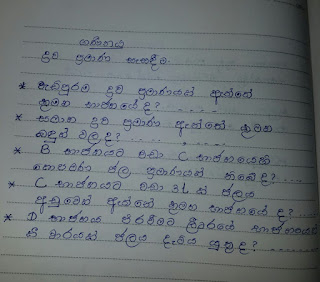 ගණිතය
ද්‍රව ප්‍රමාණ සැසඳීම.
* වැඩිපුරම ද්‍රව ප්‍රමාණයක් ඇත්තේ
කුමන භාජනයේ ද? .........
* සමාන ද්‍රව ප්‍රමාණ ඇත්තේ කුමන
බඳුන් වල ද? .........
* B භාජනයට වඩා C භාජනයෙහි
කොපමණ ජල ප්‍රමාණයක් තිබේ ද?
* C භාජනයට වඩා 3L ක් ජලය
අඩුවෙන් ඇත්තේ කුමන භාජනයේ ද? ....
* D භාජනය පිරවීමට ලීටරයේ භාජනයෙන්
කී වාරයක් ජලය දැමිය යුතු ද? .........